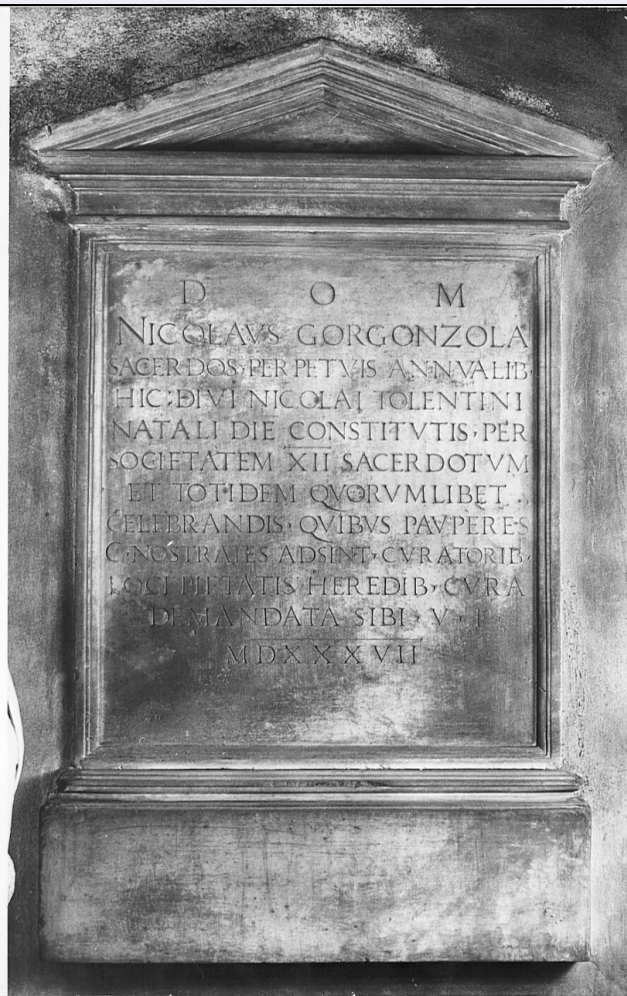 D O M
NICOLAVS GORGONZOLA
SACERDOS·PERPETVIS ANNVALIB·
HIC·DIVI NICOLAI TOLENTINI
NATALI DIE CONSTITVTIS·PER
SOCIETATEM XII SACERDOTVM
ET TOTIDEM QVORVMLIBET
CELEBRANDIS·QVIBVS PAVPERES
C·NOSTRATES ADSINT·CVRATORIB·
LOCI PIETATIS HEREDIB·CVRA
DEMANDATA SIBI·V·
MDXXXVII